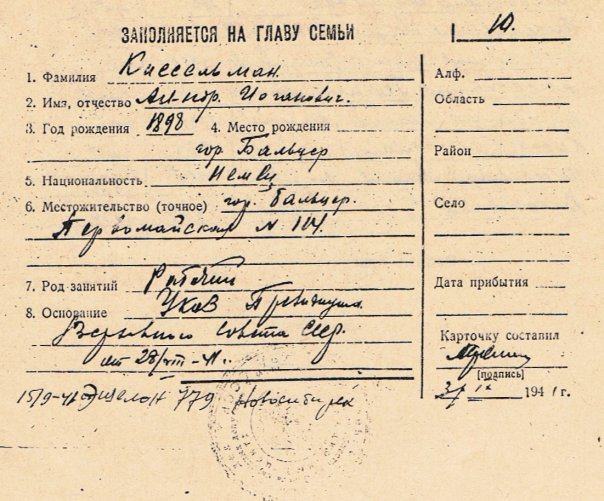 ЗАПОЛНЯЕТСЯ НА ГЛАВУ СЕМЬИ
10.
1. Фамилия Киссельман.
2. Имя, отчество Иоганович.
3. Год рождения 1898 4. Место рождения
гор Бальцер
5. Национальность Немец
6. Местожительство (точное) гор. Бальцер.
Первомайская N 104.
7. Род занятий Рабочий
8. Основание Указ Президиума
Верховного Совета ССР.
от 28/VIII-41.
15/9-41 Эшелон 779 Новосибирск
Алф.
Область
Район
Село
Дата прибытия
Карточку составил
[подпись]
3/IX 1941 г.